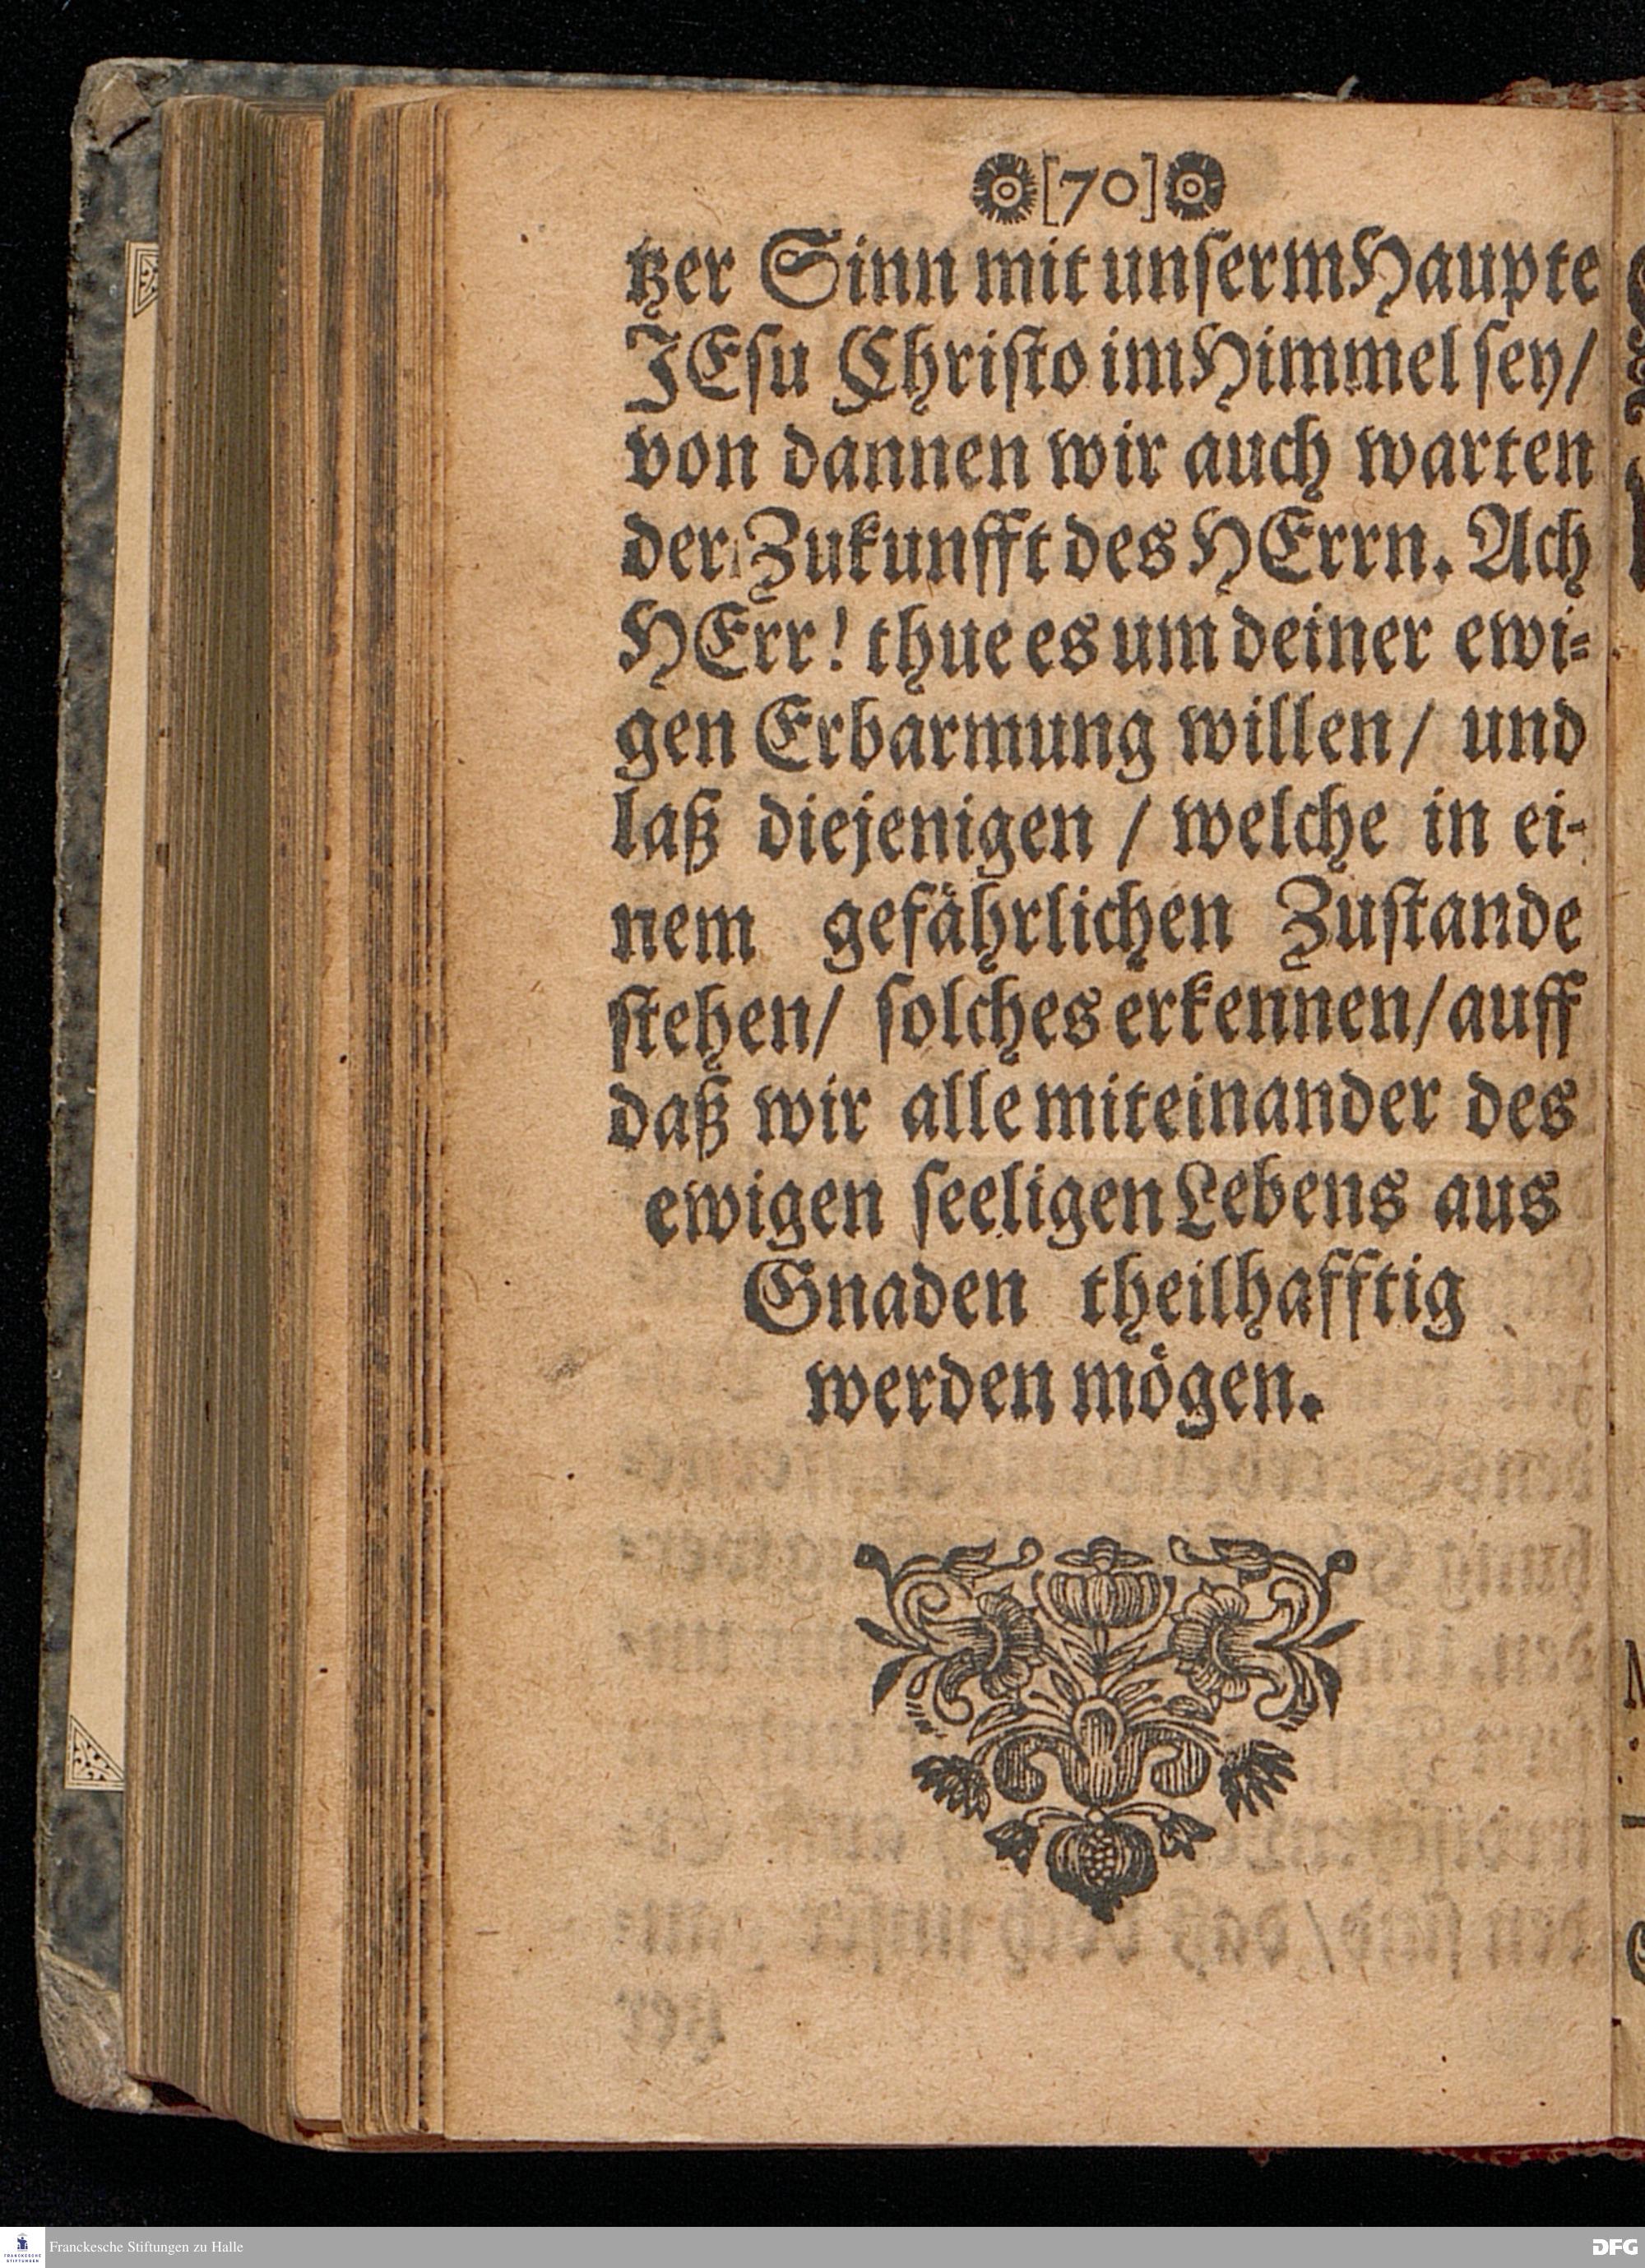 [70]
tzer Sinn mit unserm Haupte
JEsu Christo im Himmel sey/
von dannen wir auch warten
der Zukunfft des HErrn. Ach
HErr! thue es um deiner ewi-
gen Erbarmung willen/ und
laß diejenigen / welche in ei-
nem gefährlichen Zustande
stehen/ solches erkennen/auff
daß wir alle miteinander des
ewigen seeligen Lebens aus
Gnaden theilhafftig
werden mögen.
FRANCKESCHE STIFTUNGEN
Franckesche Stiftungen zu Halle
DFG